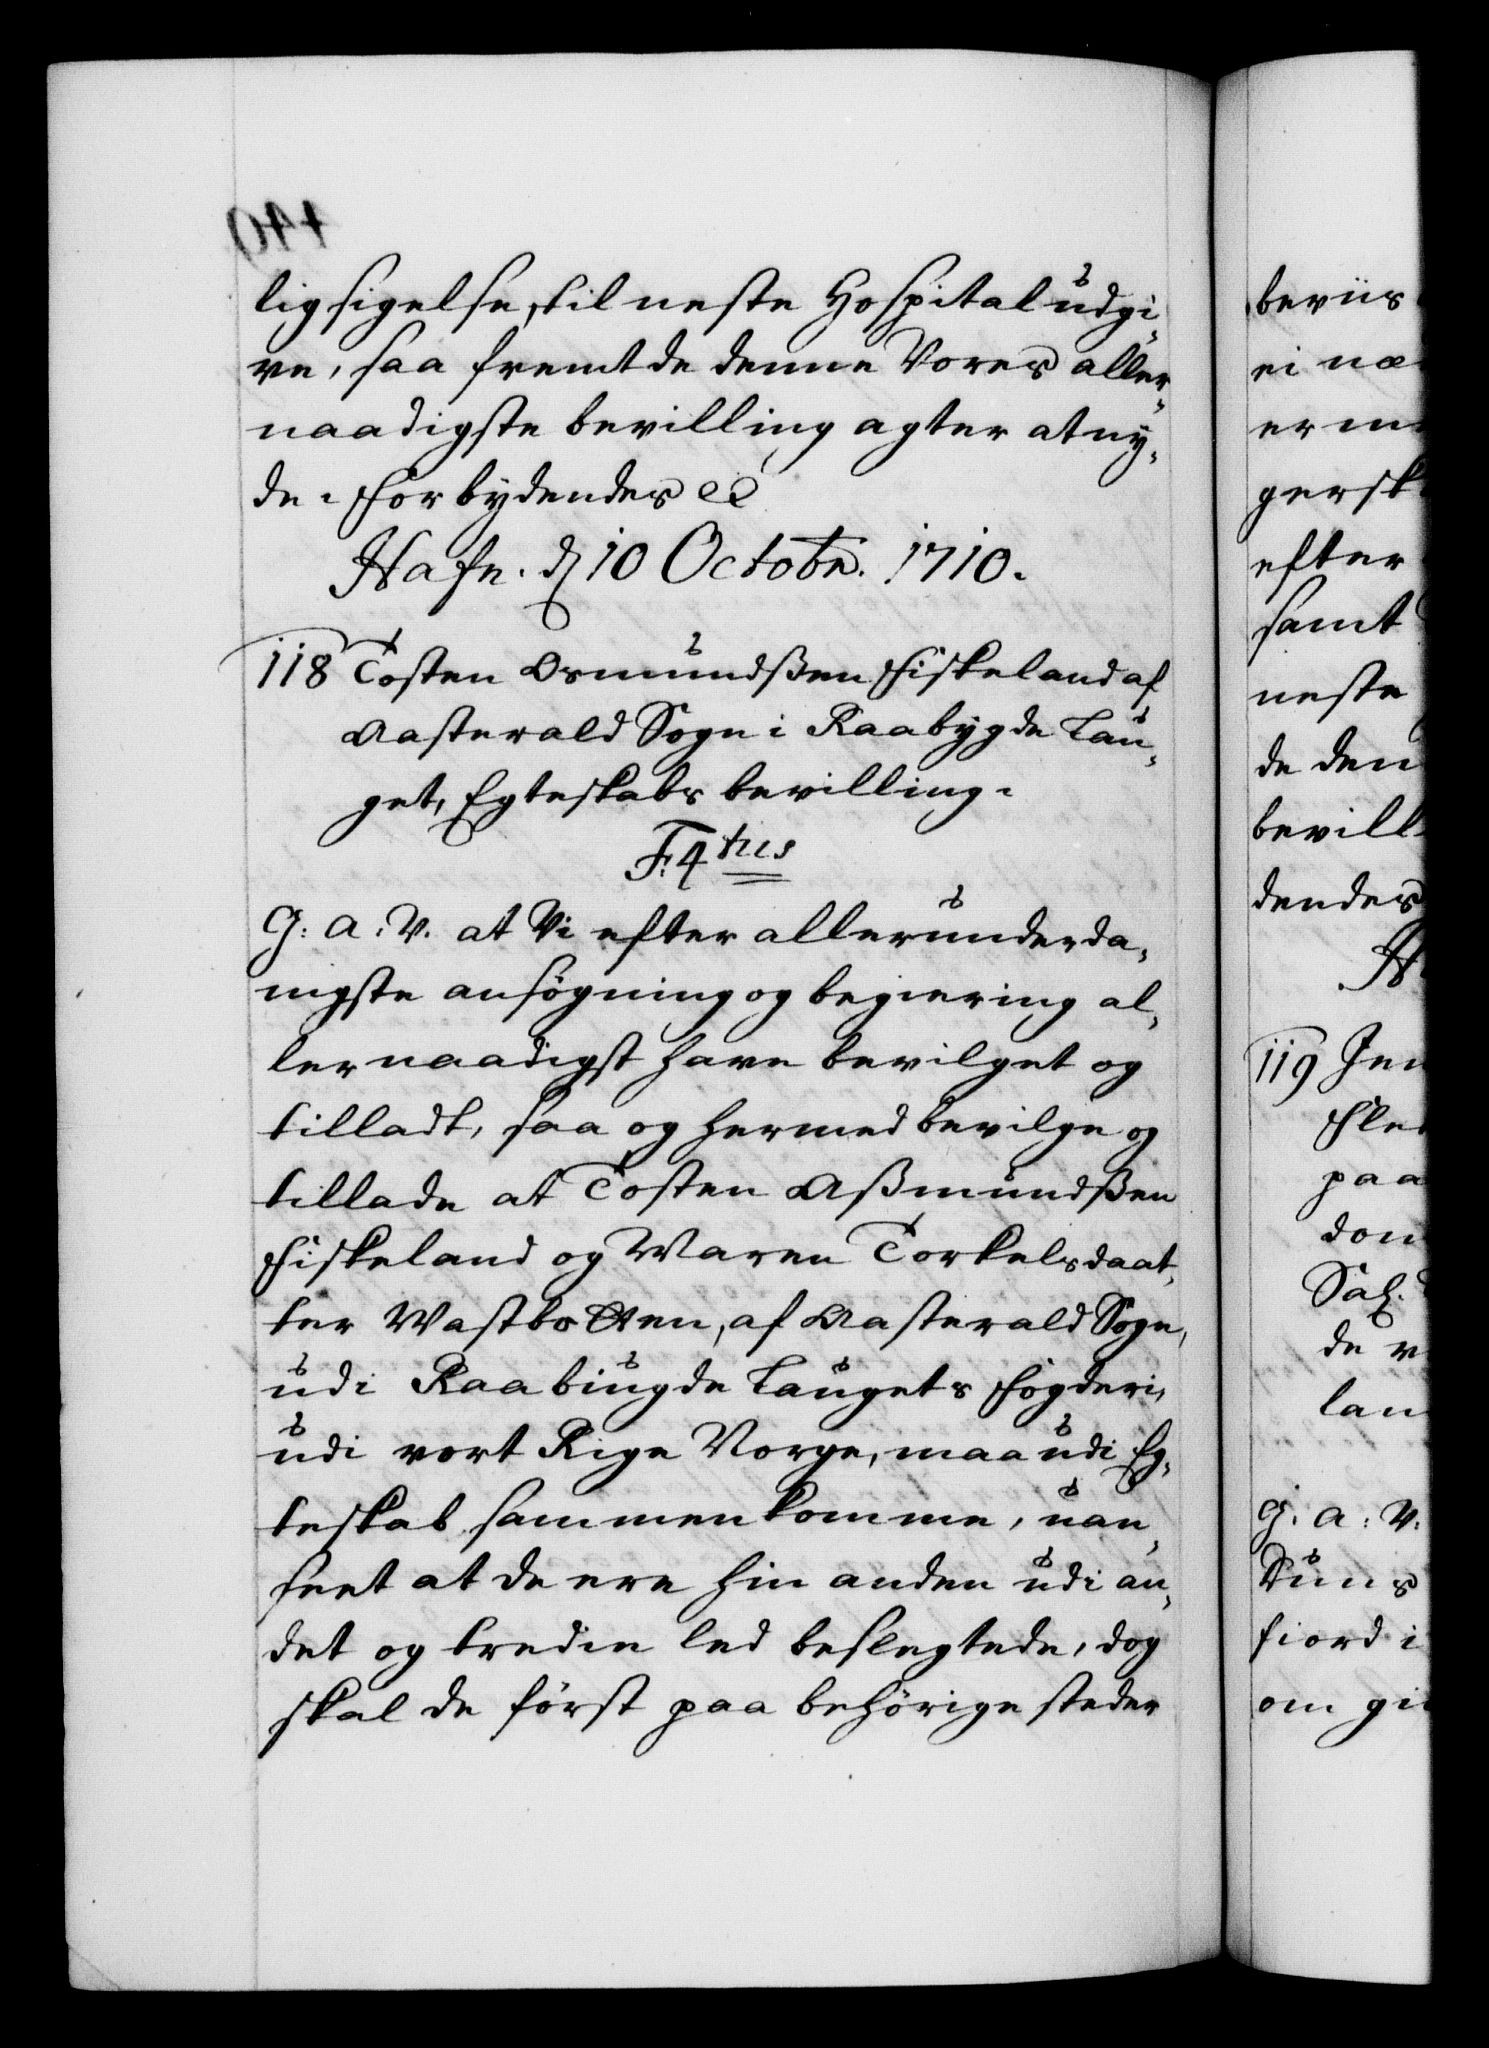 ligsigelse, til neste Hospital udgi-
ve, saa fremt de denne Vores aller-
naadigste bevilling agter at ny-
de. Forbydendes etc
Hafn. d 10 Octobr. 1710.
118 Tosten Osmundßen Fiskeland af
Aasterald Sogn i Raabygde Lau-
get, Egteskabs bevilling.
F: 4tus
G: A: V. at Vi efter allerunderda-
nigste ansøgning og begiering al-
lernaadigst have bevilget og
tilladt, saa og hermed bevilge og
tillade at Tosten Aßmundßen
Fiskeland og Maren Torkelsdaat-
ter Wastbotten, af Aasterald Sogn,
udi Raabiugde Laugets Fogderi,
udi vort Rige Norge, maa udi Eg-
teskab sammenkomme, uan-
seet at de ere hin anden udi an-
det og tredie led beslegtede, dog
skal de först paa behörige steder
beviis
ei næ
er m
gersk
efter
samt
neste
de den
bevill
dendes
H
119 Jen
Fle
paa
don
Sal.
de v
lan
G: A: V:
Suns
fiord i
om gi